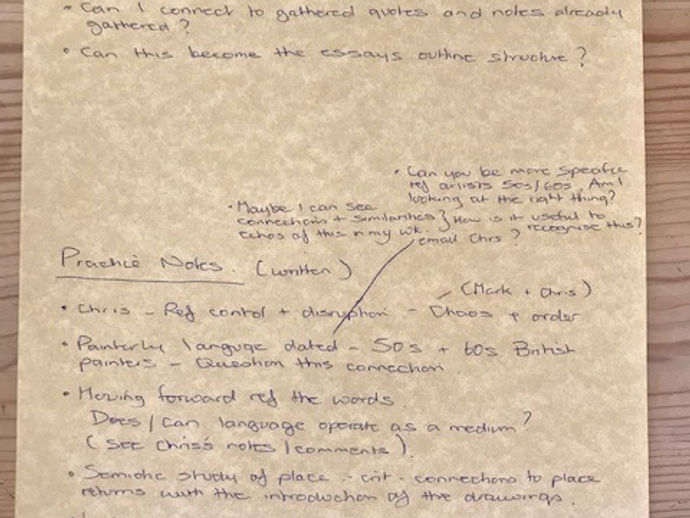 • Can I connect to gathered quotes and notes already
gathered?
• Can this become the essays outline structure?
• Can you be more specific
ref artists 50s/60s. Am I
looking at the right thing?
• Maybe I can see
connections + similarities } How is it useful to
echos of this in my wk. recognise this?
email Chris?
Practice Notes. (written)
(Mark + Chris)
• Chris - Ref control + disruption - Chaos + order
• Painterly languge dated - 50s + 60s British
painters - Question this connection.
• Moving forward ref the words.
Does / Can language operate as a medium?
(see Chris's notes / comments).
• Semiotic study of place - crit - connections to place
returns with the introduction of the drawings.